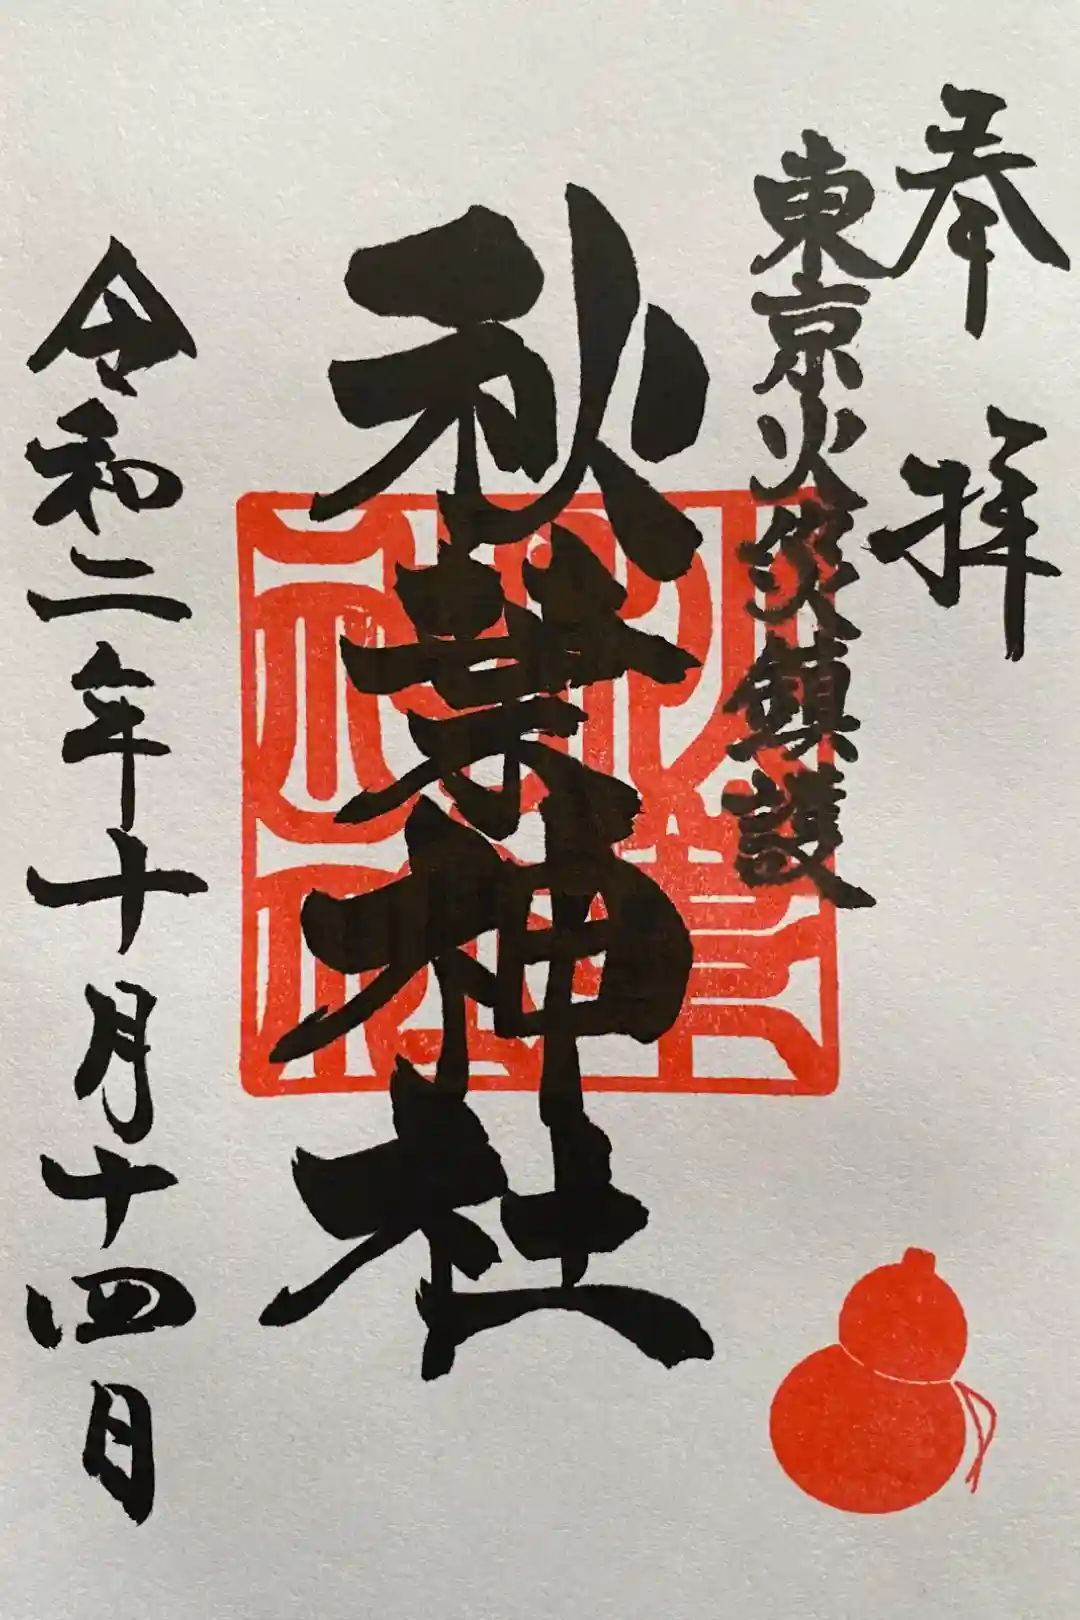 奉拝
東京火災鎮護
秋葉神社
令和二年十月十四日